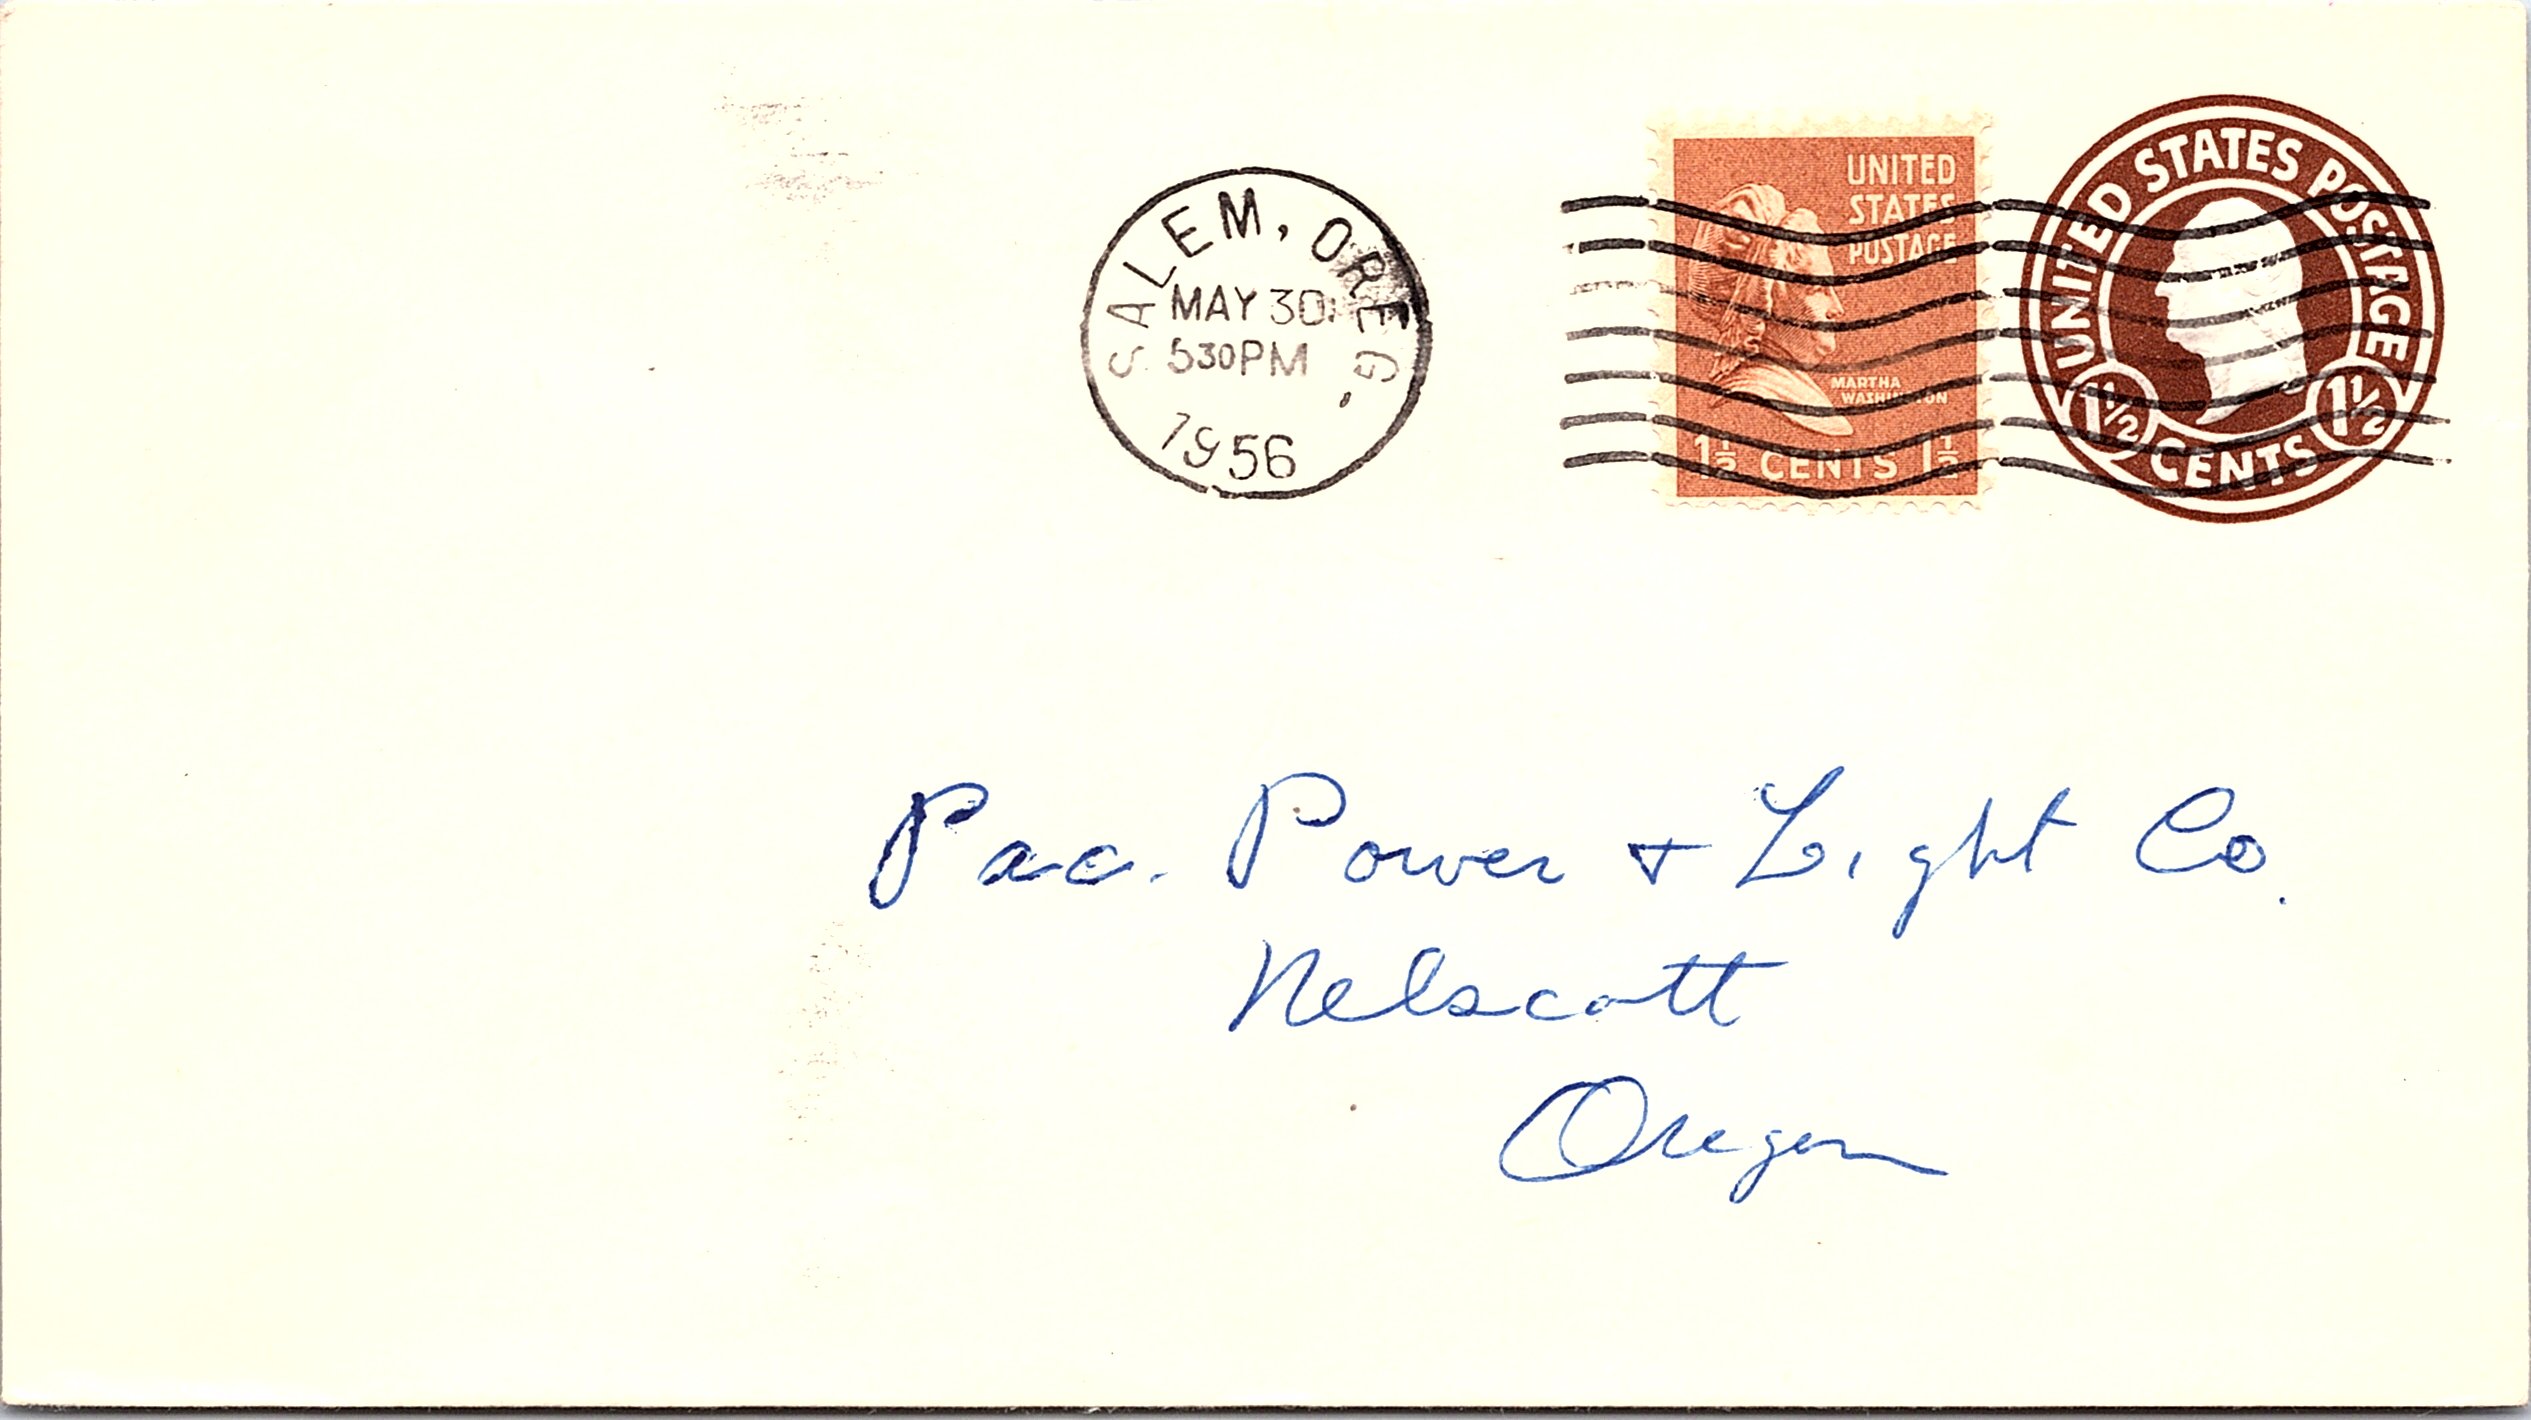 SALEM, OREG.
MAY 30
530PM
1956
UNITED
STATES
POSTAGE
MARTHA
WASHINGTON
1½ CENTS 1½
UNITED STATES POSTAGE
1½ CENTS 1½
Pac. Power + Light Co.
Nelscott
Oregon